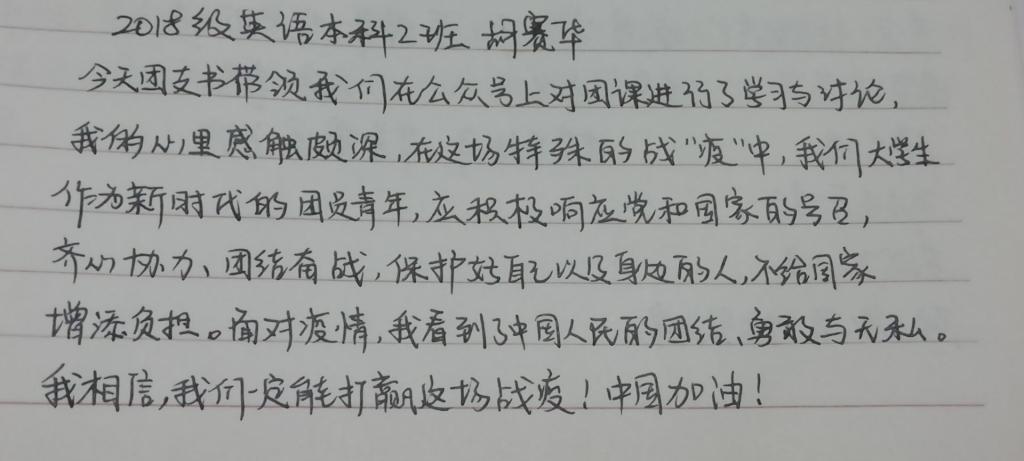 2018级英语本科2班 胡赛华
今天团支书带领我们在公众号上对团课进行了学习与讨论,
我的心里感触颇深,在这场特殊的战“疫”中,我们大学生
作为新时代的团员青年,应积极响应党和国家的号召,
齐心协力、团结奋战,保护好自己以及身边的人,不给国家
增添负担。面对疫情,我看到了中国人民的团结、勇敢与无私。
我相信,我们一定能打赢这场战疫!中国加油!